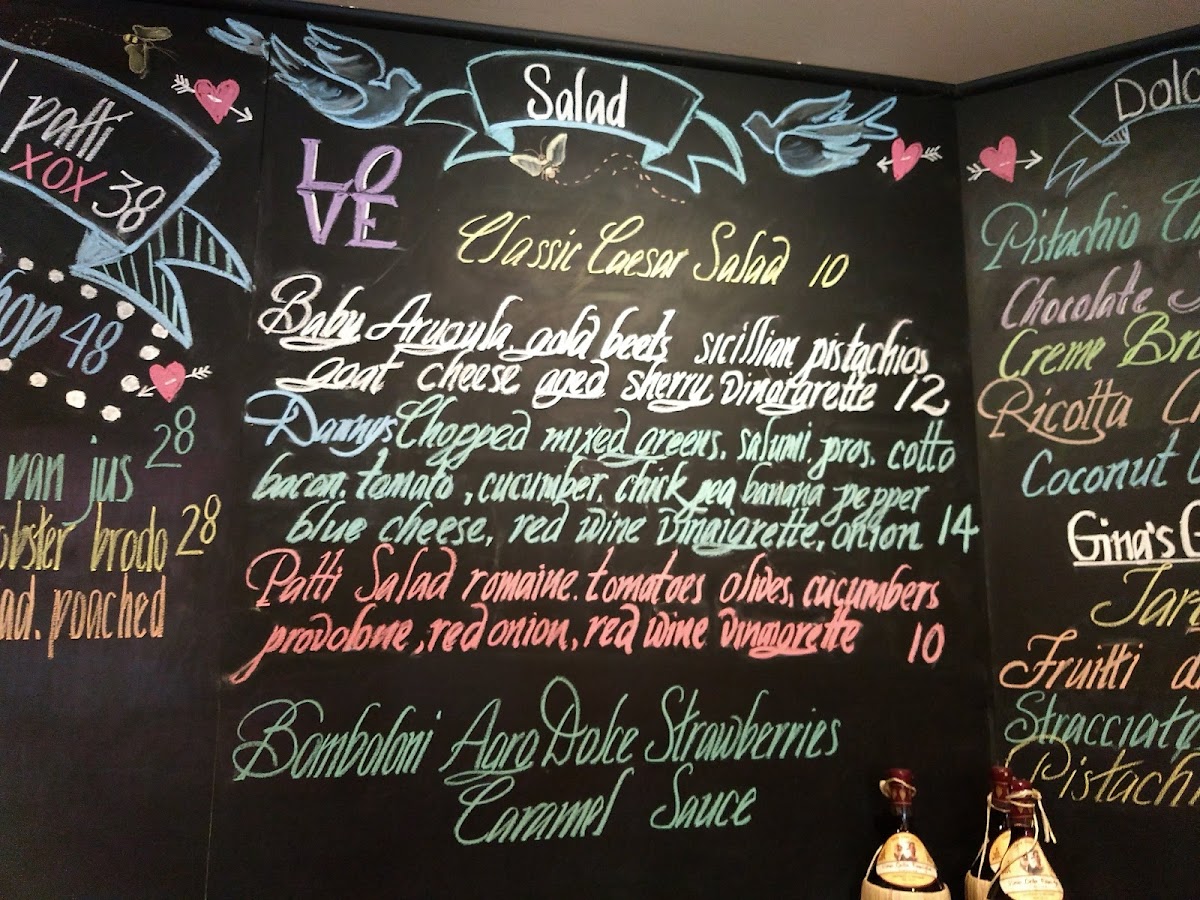 patti
XOX 38
hop 48
van jus 28
obster brodo 28
ad. poached
Salad
LO
VE
Classic Caesar Salad 10
Baby Arugula, gold beets sicillian pistachios
goat cheese aged sherry vinaigrette 12
Dannys Chopped mixed greens, salumi, pros. cotto
bacon, tomato, cucumber, chick pea banana pepper
blue cheese, red wine vinaigrette, onion 14
Patti Salad romaine, tomatoes olives, cucumbers
provolone, red onion, red wine vinaigrette 10
Bomboloni Agro Dolce Strawberries
Caramel Sauce
Dolc
Pistachio
Chocolate
Creme Br
Ricotta C
Coconut
Gina's G
Tar
Fruitti
Stracciat
Pistach